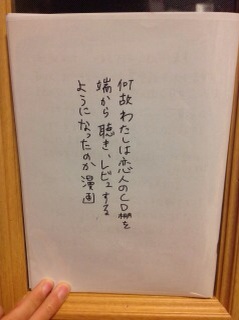 何故わたしは恋人のCD棚を
端から聴き、レビュする
ようになったのか漫画